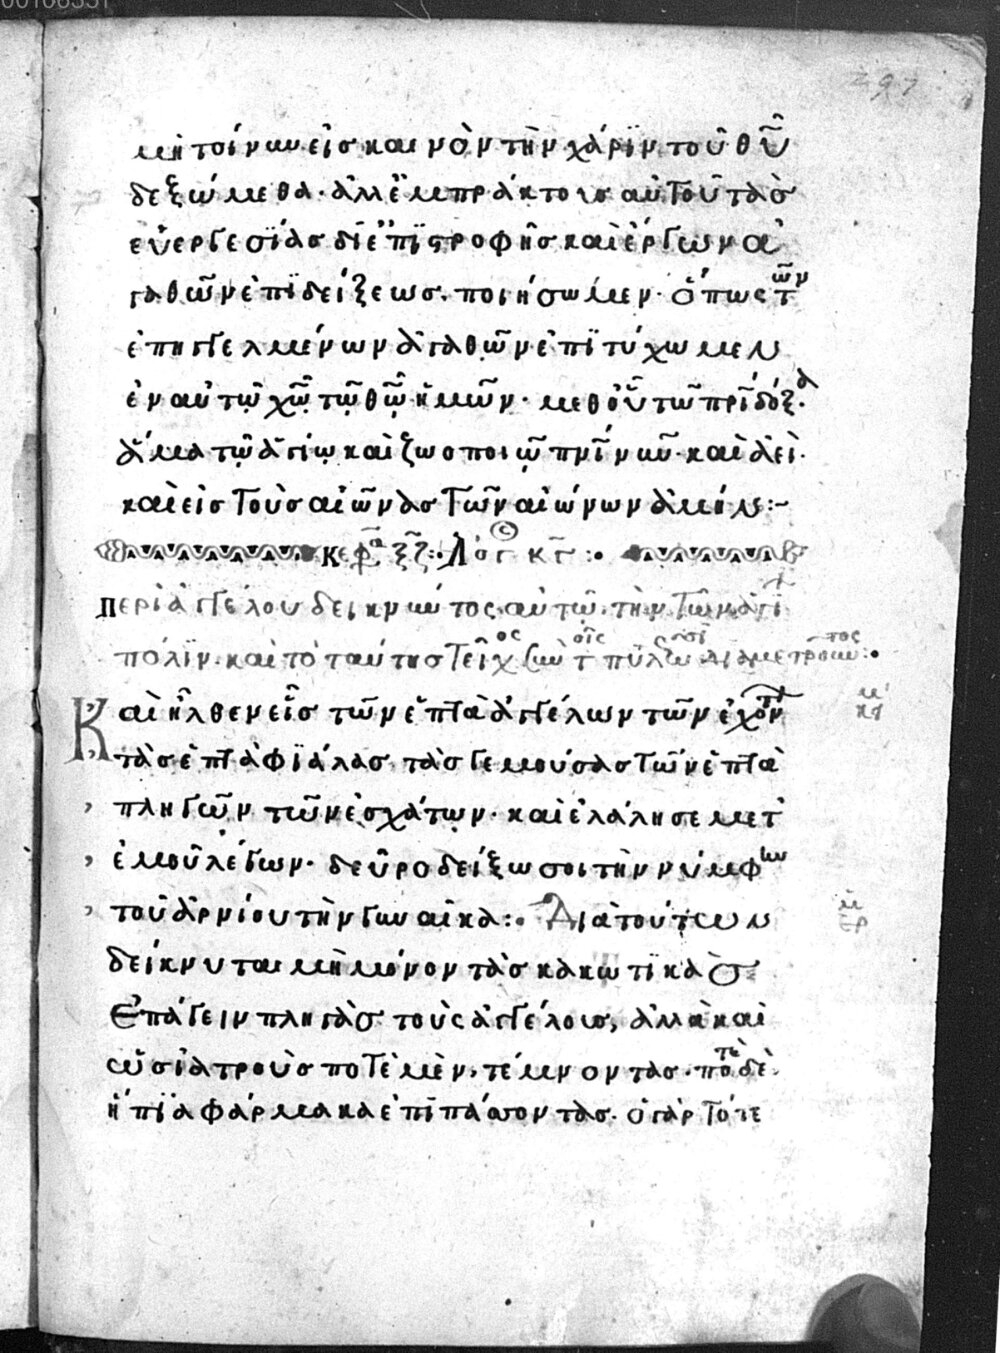 00106331
297
μὴ τοίνυν εἰς καινὸν τὴν χάριν τοῦ θῦ
δεξώμεθα· ἀλλ' ἐμπράκτους αὐτοῦ τὰς
εὐεργεσίας δι' ἐπιστροφῆς καὶ ἔργων ἀ
γαθῶν ἐπιδείξεως. ποιήσωμεν· ὅπως τῶν
ἐπηγγελμένων ἀγαθῶν ἐπιτύχωμεν
ἐν αὐτῶ χῶ τῶ θῶ ἡμῶν· μεθ' οὗ τῶ πρὶ δόξα
ἅμα τῶ ἁγίω καὶ ζωοποιῶ πνι νῦν· καὶ ἀεὶ·
καὶ εἰς τοὺς αἰῶνας τῶν αἰώνων ἀμήν:~
κεφα ξζ:· λόγος κγ:·
περὶ ἀγγέλου δεικνύντος αὐτῶ· τὴν τῶν ἁγί
πόλιν· καὶ τὸ ταύτης τεῖχος σὺν τοῖς πυλῶσι διαμετροῦντος:·
Καὶ ἦλθεν εἷς τῶν ἑπτὰ ἀγγέλων τῶν ἐχόντων
τὰς ἑπτὰ φιάλας τὰς γεμούσας τῶν ἑπτὰ
πληγῶν τῶν ἐσχάτων· καὶ ἐλάλησε μετ'
ἐμοῦ λέγων· δεῦρο δείξω σοι τὴν νύμφην
τοῦ ἀρνίου τὴν γυναῖκα:· Διὰ τούτων
δείκνυται μὴ μόνον τὰς κακωτικὰς
ἐπάγειν πληγὰς τοὺς ἀγγέλους, ἀλλὰ καὶ
ὡς ἰατροὺς ποτὲ μὲν, τέμνοντας· ποτὲ δὲ
ἤπια φάρμακα ἐπιπάττοντας· ὁ γὰρ τότε